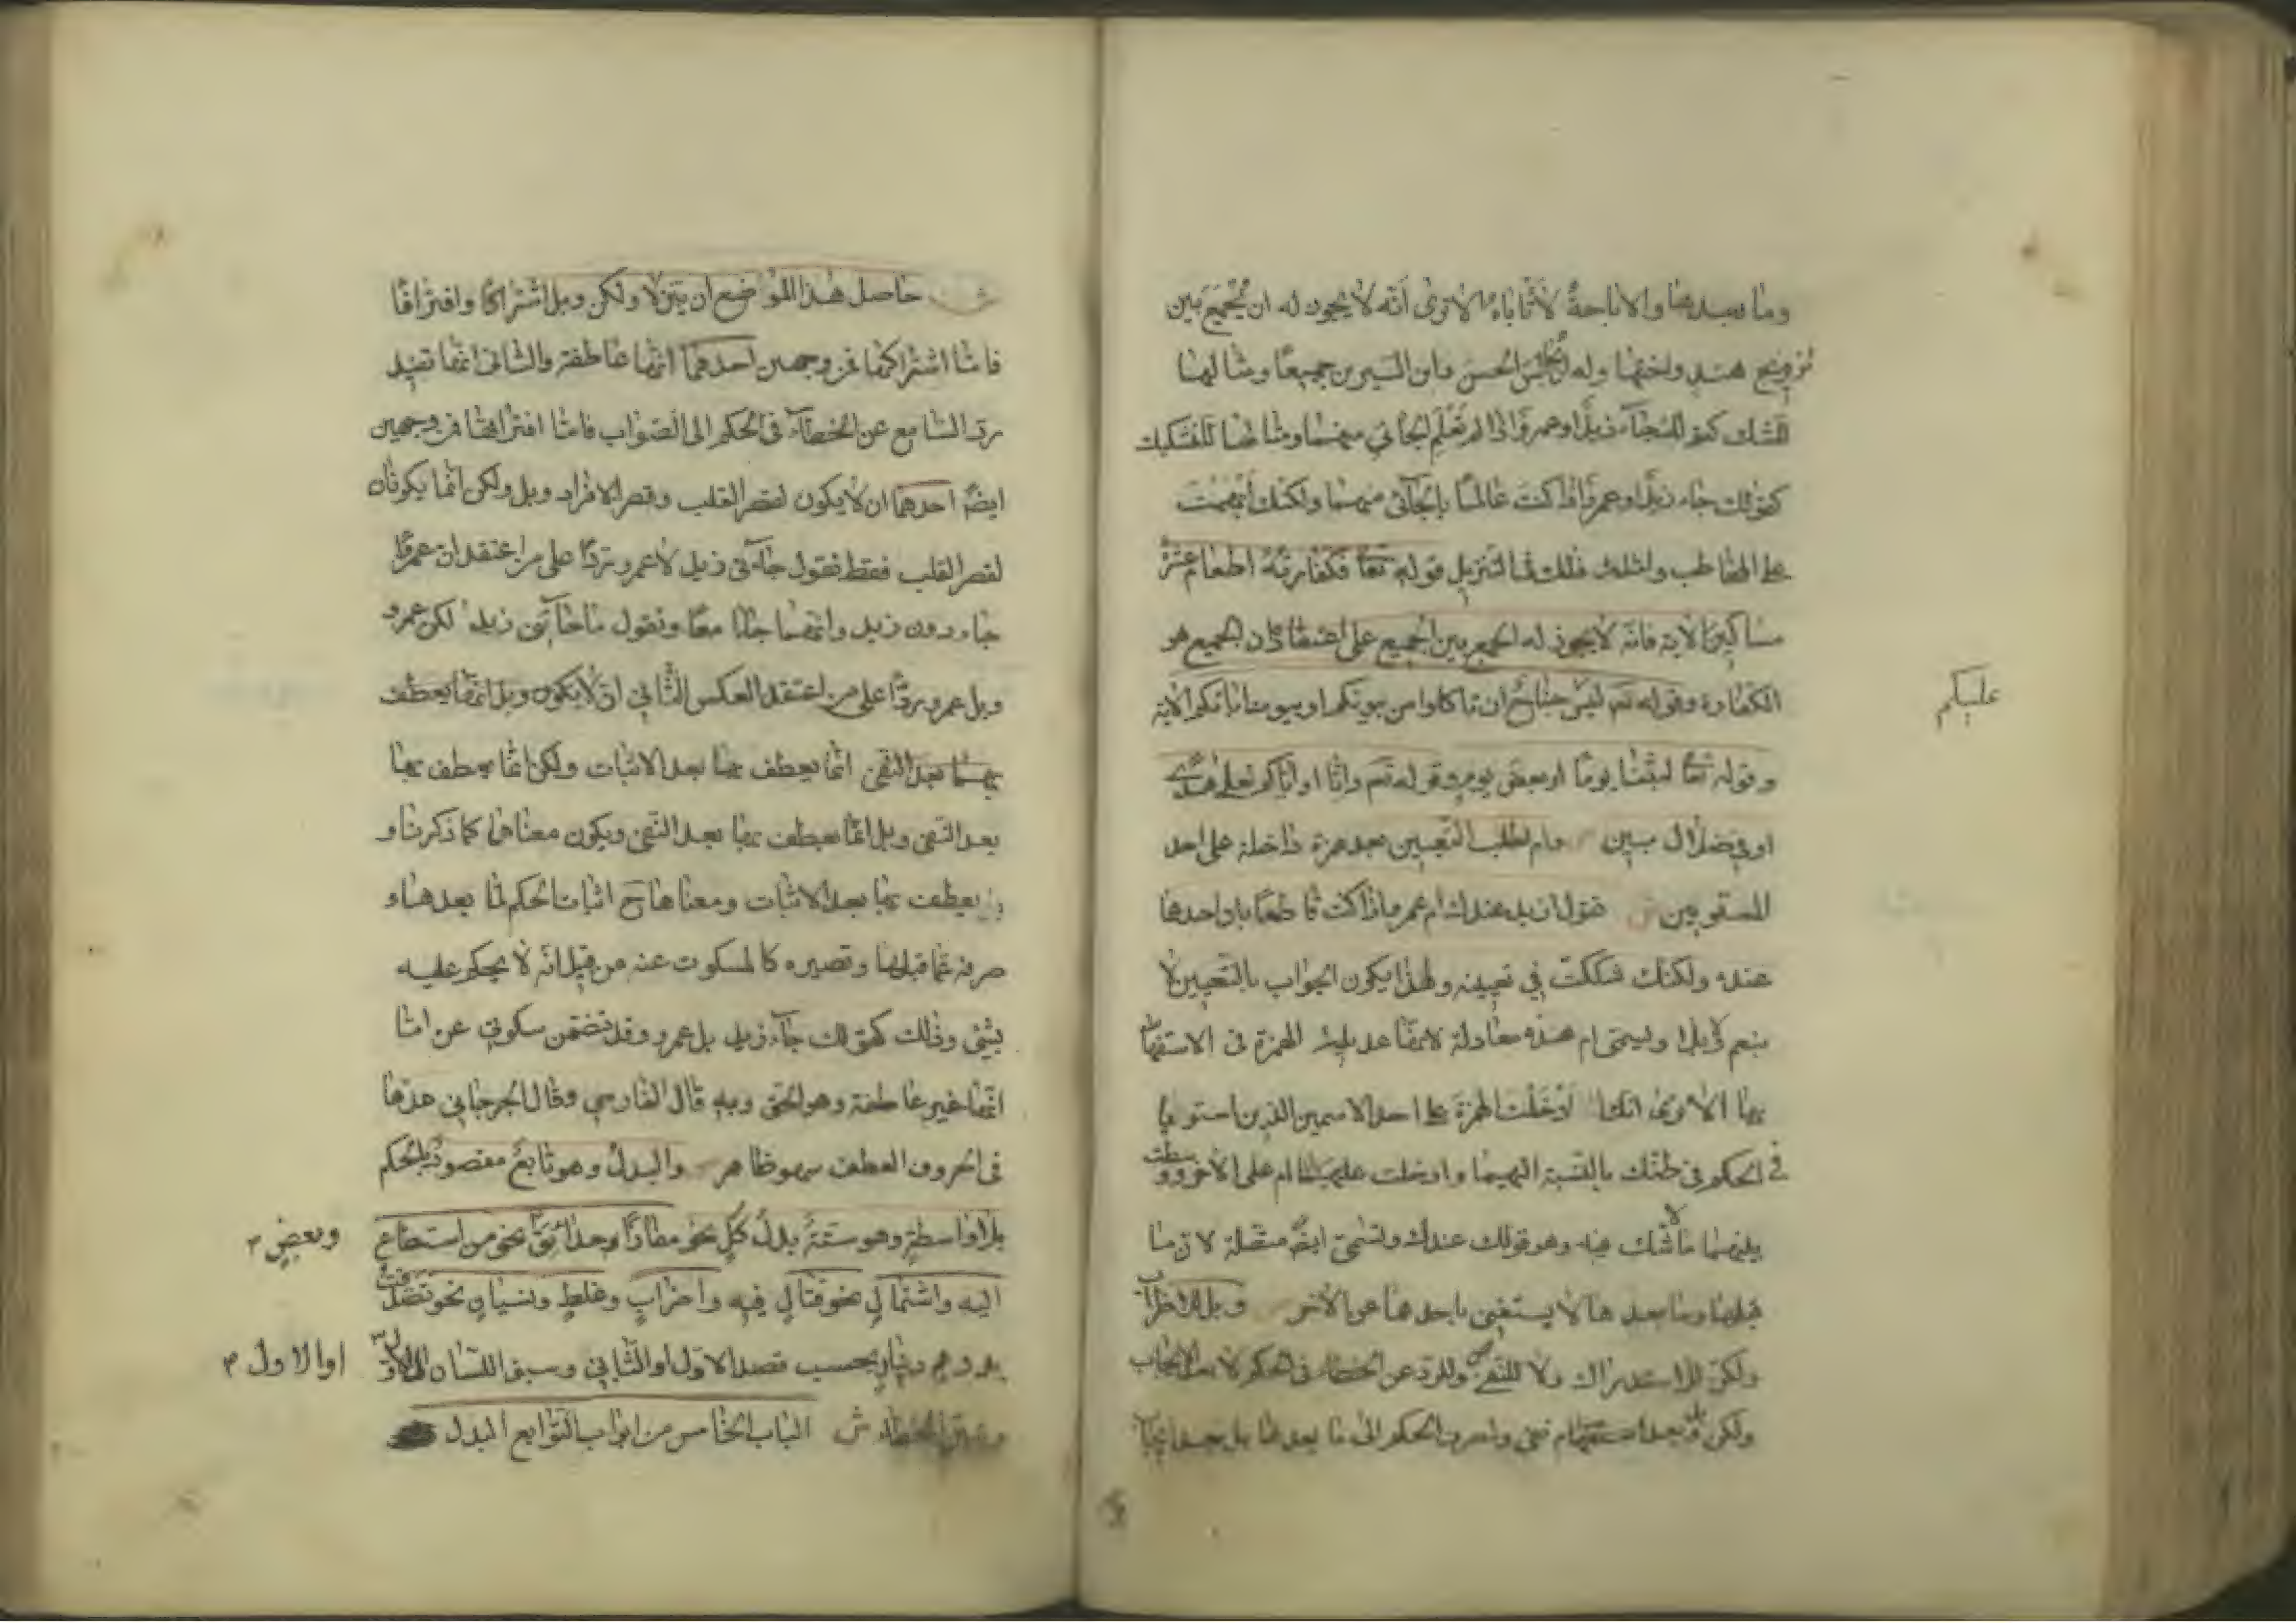 وما بعدها والاباحة لا تاباه الا ترى أنه لا يجوز له ان يجمع بين
تزويج هند واختها وله ان يجالس الحسن وابن السيرين جميعا ومثالهما
للشك كقولك جاء زيد او عمرو اذا لم تعلم الجائي منهما ومثالها للتشكيك
كقولك جاء زيد او عمرو اذا كنت عالما بالجائى منهما ولكنك أبهمت
على المخاطب وامثلة ذلك فى التنزيل قوله تعا فكفارته اطعام عشرة
مساكين الآية فانه لا يجوز له الجمع بين الجميع على اعتقاد ان الجميع هو
الكفارة وقوله تع ليس جناح ان تاكلوا من بيوتكم او بيوت ابائكم الاية
عليكم
وقوله تعا لبثنا يوما او بعض يوم وقوله تع وانا او اياكم لعلى هدى
او في ضلال مبين وام لطلب التعيين بعد همزة داخلة على احد
المستويين ش تقول ازيد عندك ام عمرو اذا كنت قاطعا بان احدهما
عنده ولكنك شككت في تعيينه ولهذا يكون الجواب بالتعيين لا
بنعم لا بلا وليسمى ام هذه معادلة لانها عديلة الهمزة فى الاستفهام
بها الا ترى انك ادخلت الهمزة على احد الاسمين الذين استويا
في الحكم فى ظنك بالنسبة اليهما وادخلت ام على الآخر ووسطت
بينهما ما لا تشك فيه وهو قولك عندك وتسمى ايضا متصلة لان ما
قبلها وما بعدها لا يستغنى باحدهما عن الآخر وبل للاضراب
ولكن للاستدراك ولا للنفى وللرد عن الخطاء فى الحكم لا بعد الايجاب
ولكن وبل بعد نفى ولصرف الحكم الى ما بعدها بل بعد ايجاب
ش حاصل هذا المواضع ان بين لا ولكن وبل اشتراكا وافتراقا
فاما اشتراكها فمن وجهين احدهما انها عاطفة والثانى انها تفيد
رد السامع عن الخطاء فى الحكم الى الصواب فاما افتراقها فمن وجهين
ايضا احدهما ان لا يكون لقصر القلب وقصر الافراد وبل ولكن انما يكونان
لقصر القلب فقط فتقول جاءنى زيد لا عمرو ردا على من اعتقد ان عمروا
جاء دون زيد وانهما جاءا معا وتقول ما جاءنى زيد لكن عمرو
وبل عمرو ردا على من اعتقد العكس الثاني ان لا يكون وبل انما يعطف
بهما بعد النفى انما يعطف بها بعد الاثبات ولكن انما يعطف بها
بعد النفى وبل انما يعطف بها بعد النفى ويكون معناها كما ذكرنا و
يعطف بها بعد الاثبات ومعناها ح اثبات الحكم لما بعدها و
صرفه عما قبلها وتصيره كالمسكوت عنه من قبل انه لا يحكم عليه
بشئ وذلك كقولك جاء زيد بل عمرو وقد تضمن سكوتي عن اما
انها غير عاطفة وهو الحق وبه قال الفارسي وقال الجرجاني عدها
فى الحروف العطف سهو ظاهر والبدل وهو تابع مقصود بالحكم
بلا واسطة وهو ستة بدل كل نحو مفازا حدائق نحو من استطاع
وبعض
اليه واشتمال نحو قتال فيه واضراب وغلط ونسيان نحو تصدقت
بدرهم دينار بحسب قصد الاول او الثاني وسبق اللسان
او الاول
وتبين الخطاء ش الباب الخامس من ابواب التوابع البدل